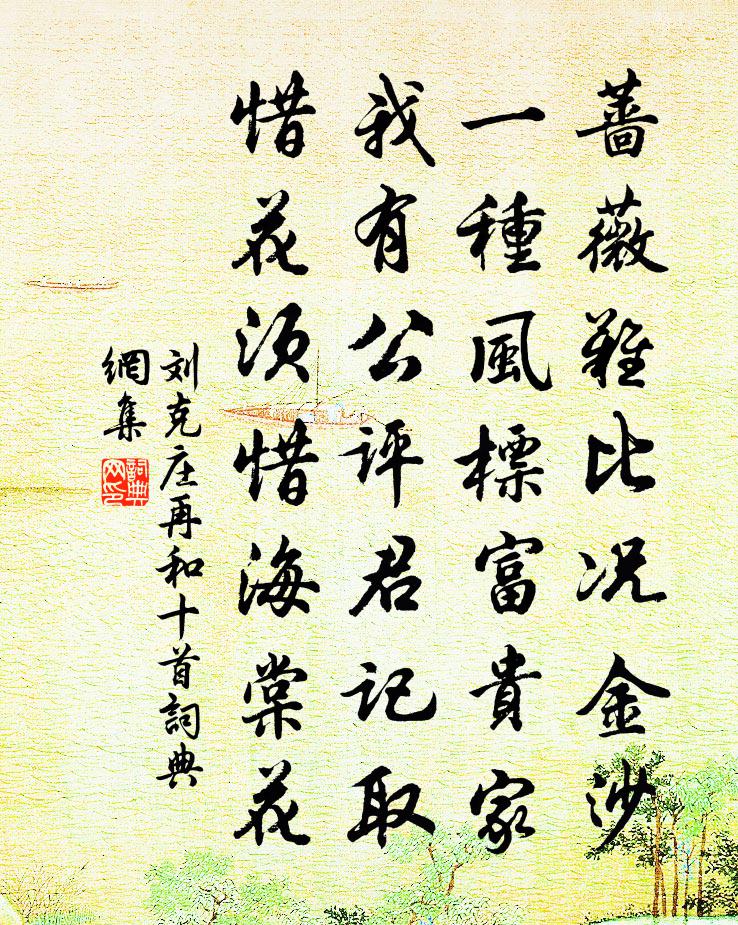 薔薇難比况金沙
一種風標富貴家
我有公評君記取
惜花須惜海棠花
刘克庄再和十首詞典
網集
詞典
网印